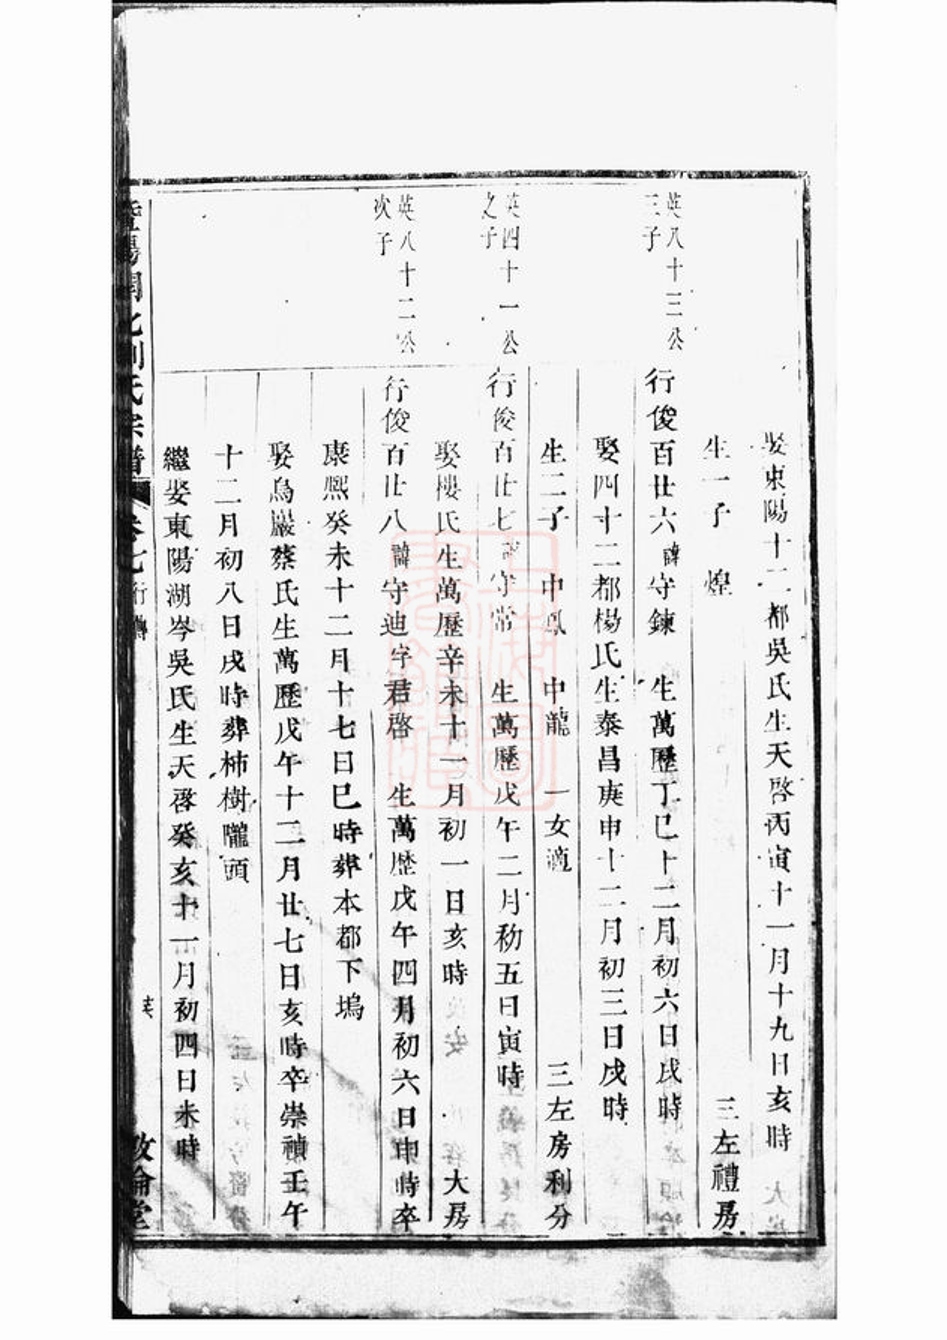 娶東陽十二都吳氏生天啓丙寅十一月十九日亥時
生一子　煌　三左禮房
英八十三公
三子
行俊百廿六諱守鍊　生萬歷丁巳十二月初六日戌時
娶四十二都楊氏生泰昌庚申十二月初三日戌時
生二子　中鳳　中龍　一女適　三左房利分
英四十一公
之子
行俊百廿七諱守常　生萬歷戊午二月初五日寅時
娶樓氏生萬歷辛未十一月初一日亥時　大房
英八十二公
次子
行俊百廿八諱守迪字君啓　生萬歷戊午四月初六日申時卒
康熙癸未十二月十七日巳時葬本都下塢
娶烏巖蔡氏生萬歷戊午十二月廿七日亥時卒崇禎壬午
十二月初八日戌時葬柿樹隴頭
繼娶東陽湖岑吳氏生天啓癸亥十一月初四日未時
暨陽開化劉氏宗譜　卷七　行傳　敦倫堂